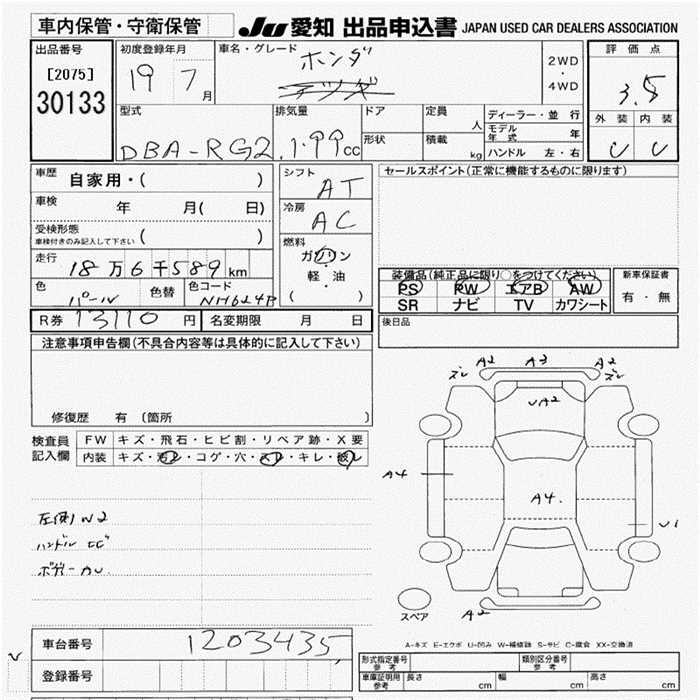 車内保管・守衛保管
JU 愛知 出品申込書 JAPAN USED CAR DEALERS ASSOCIATION
出品番号
[2075]
30133
初度登録年月
19 7 月
車名・グレード
ホンダ
2WD
・
4WD
評価点
3.5
外装 内装
型式
DBA-RG2
排気量
1.99 cc
ドア
形状
定員
人
積載
kg
ディーラー・並行
モデル年式 年
ハンドル 左・右
車歴 自家用・( )
車検 年 月( 日)
受検形態
車検付きのみ記入して下さい ( )
走行 18万6千589 km
色 パール 色替 色コード NH624P
シフト
AT
冷房
AC
燃料
ガソリン
・
軽・油
( )
セールスポイント(正常に機能するものに限ります)
装備品(純正品に限り○をつけてください)
PS PW エアB AW
SR ナビ TV カワシート
新車保証書
有・無
後日品
R券 13110 円 名変期限 月 日
注意事項申告欄(不具合内容等は具体的に記入して下さい)
修復歴 有 (箇所 )
検査員
記入欄
FW キズ・飛石・ヒビ割・リペア跡・X要
内装 キズ・汚レ・コゲ・穴・スレ・キレ・破レ
左側 W2
ハンドル
ボデー
A2 A3 A2
ズレ ズレ
A4
A4.
U1
A2
スペア
A-キズ E-エクボ U-凹み W-補修跡 S-サビ C-腐食 XX-交換済
車台番号 1203435
登録番号
形式指定番号
参考
類別区分番号
参考
車庫証明用
参考
長さ cm 幅 cm 高さ cm